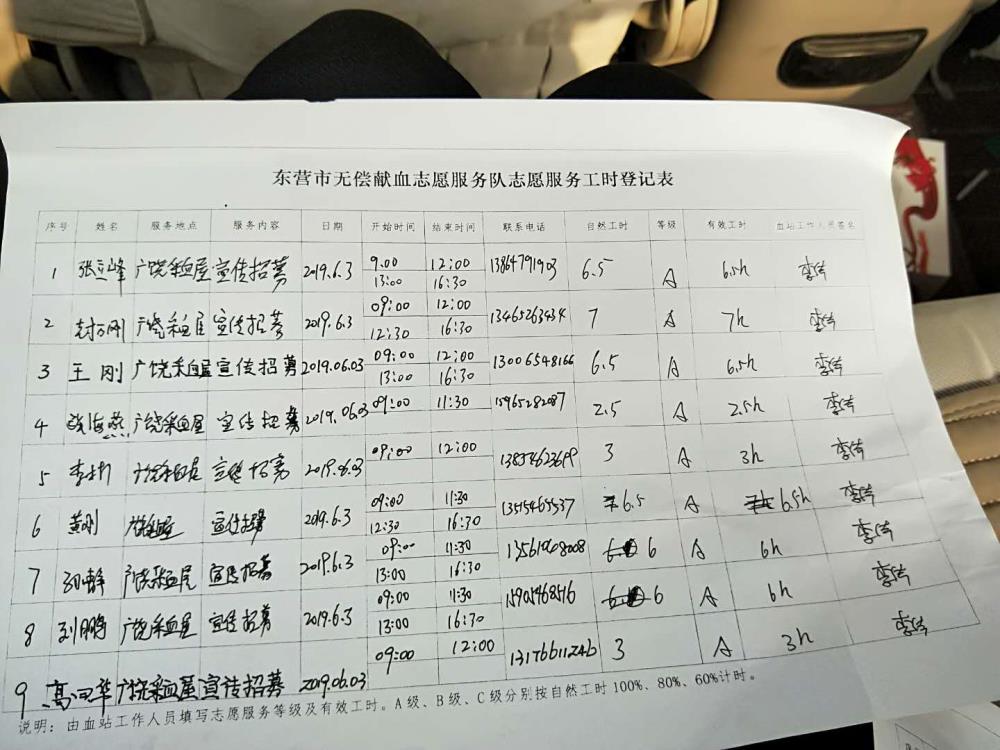 东营市无偿献血志愿服务队志愿服务工时登记表
序号 姓名 服务地点 服务内容 日期 开始时间 结束时间 联系电话 自然工时 等级 有效工时 血站工作人员签名
1 张立峰 广饶采血屋 宣传招募 2019.6.3 9:00 12:00 13864791903 6.5 A 6.5h
13:00 16:30
2 封万刚 广饶采血屋 宣传招募 2019.6.3 09:00 12:00 13465263434 7 A 7h
12:30 16:30
3 王刚 广饶采血屋 宣传招募 2019.06.03 09:00 12:00 13006548166 6.5 A 6.5h
13:00 16:30
4 张海燕 广饶采血屋 宣传招募 2019.06.03 09:00 11:30 15965282087 2.5 A 2.5h
5 广饶采血屋 宣传招募 2019.6.03 09:00 12:00 3 A 3h
6 黄刚 广饶采血屋 宣传招募 2019.6.3 09:00 11:30 13515465537 6.5 A 6.5h
12:30 16:30
7 广饶采血屋 宣传招募 2019.6.3 09:00 11:30 13561968008 6 A 6h
13:00 16:30
8 刘鹏 广饶采血屋 宣传招募 2019.6.3 09:00 11:30 6 A 6h
13:00 16:30
9 广饶采血屋 宣传招募 2019.06.03 09:00 12:00 13176611246 3 A 3h
说明：由血站工作人员填写志愿服务等级及有效工时。A级、B级、C级分别按自然工时100%、80%、60%计时。